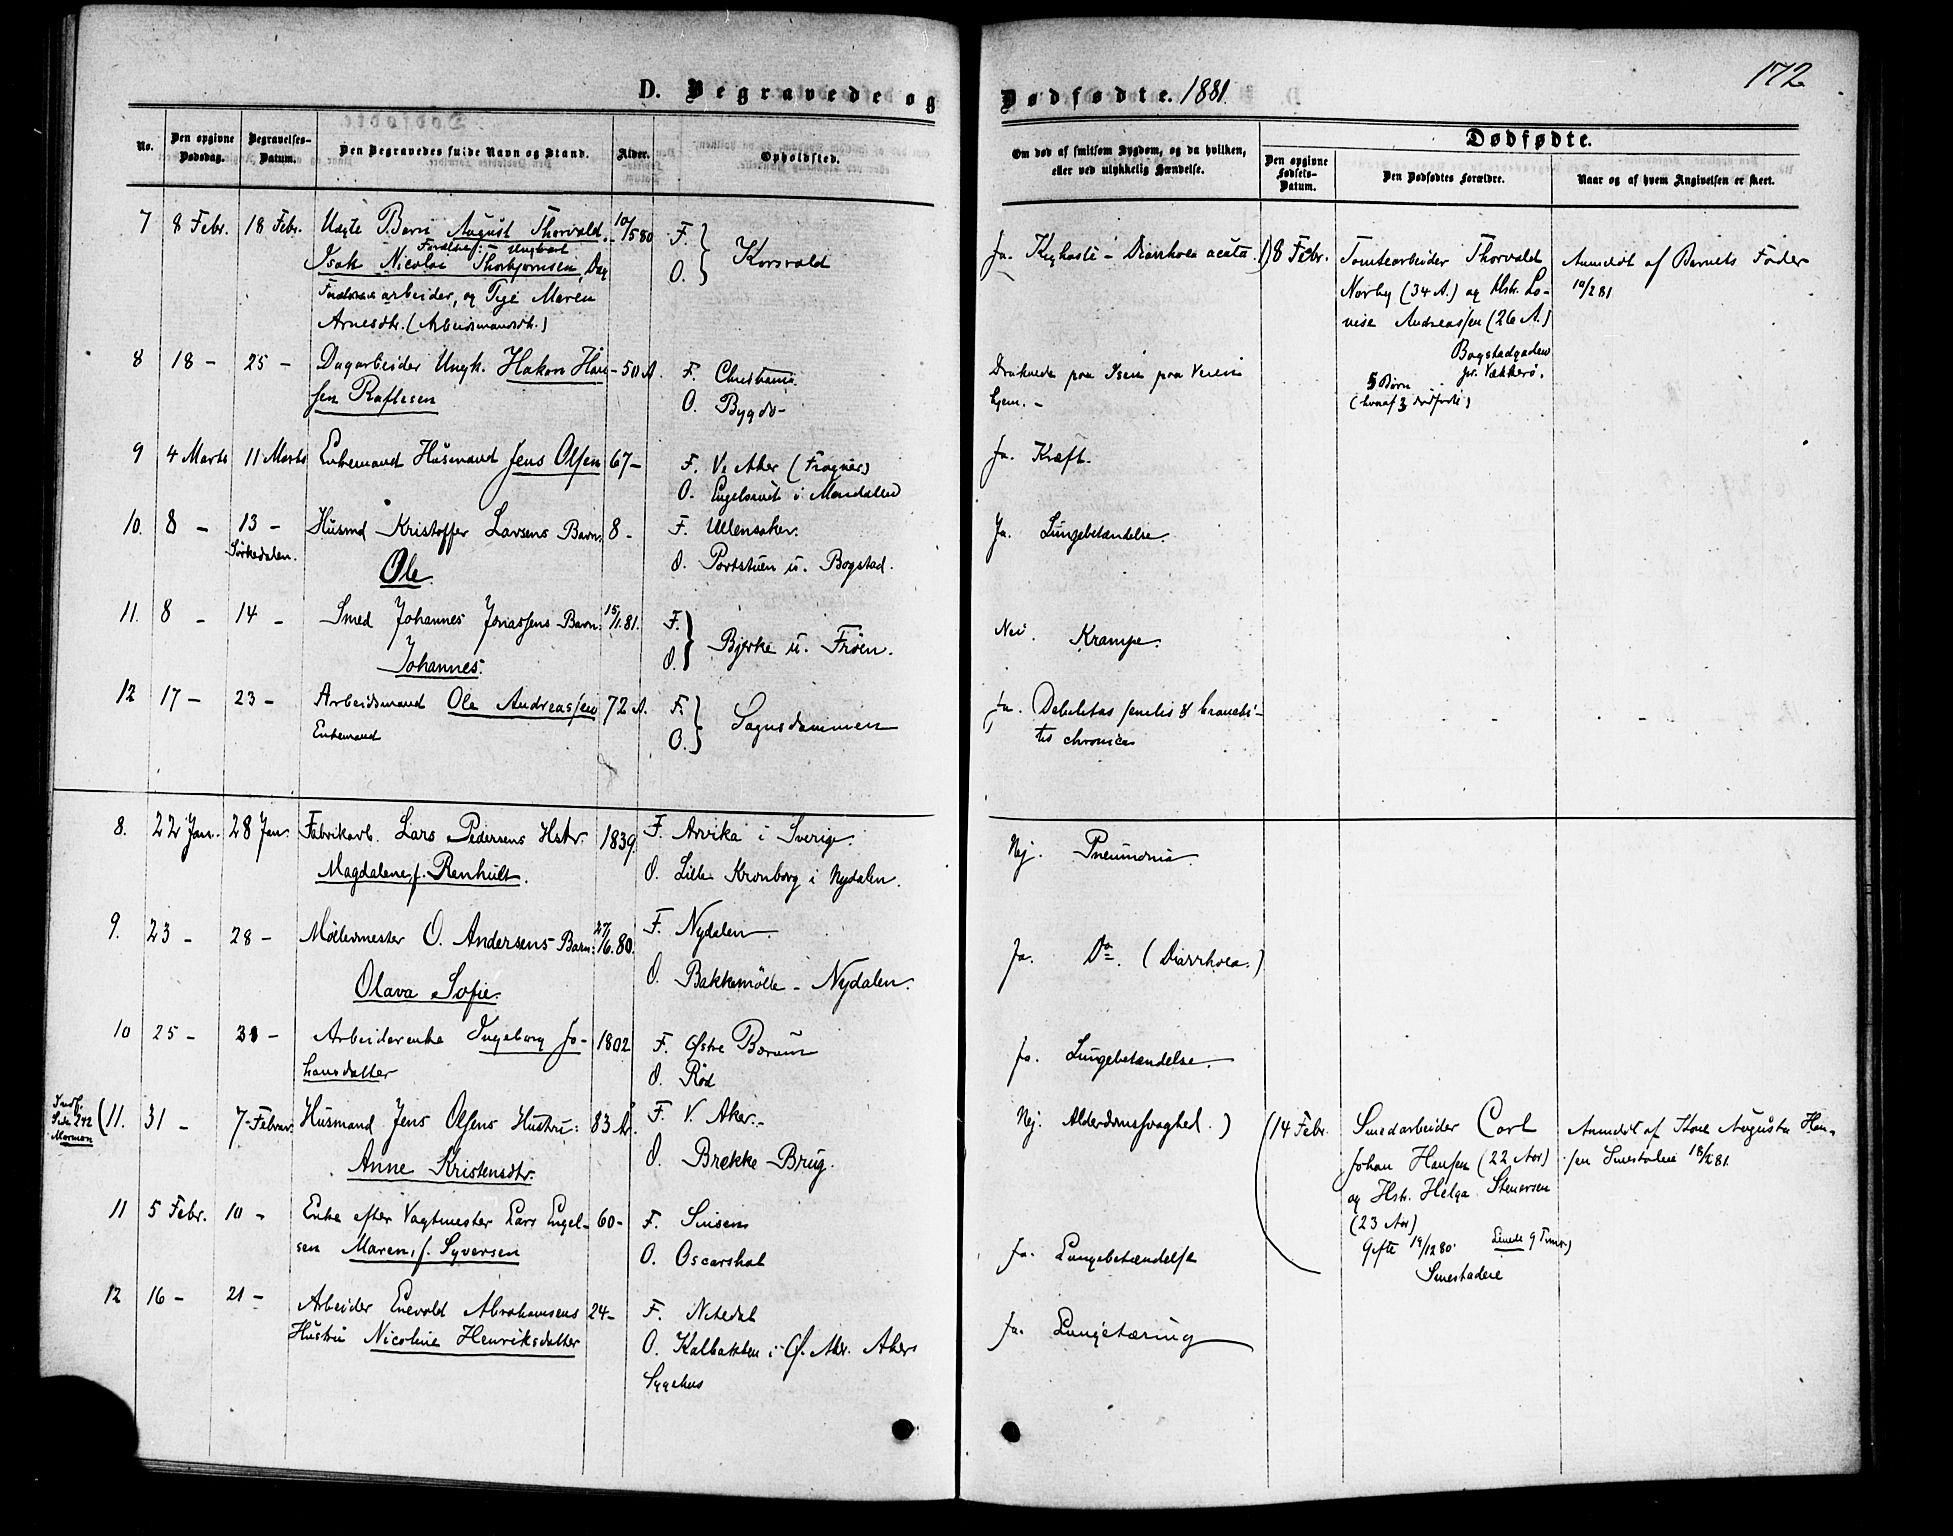 172
D. Begravede og Dødfødte. 1881.
No.
Den opgivne Dødsdag.
Begravelses-Datum.
Den Begravedes fulde Navn og Stand.
Alder.
Opholdssted.
Om død af smitsom Sygdom, og da hvilken,
eller ved ulykkelig Hændelse.
Dødfødte.
Den opgivne Fødsels-Datum.
Den Dødfødtes Forældre.
Naar og af hvem Angivelsen er skeet.
7 8 Febr. 18 Febr. Uægte Barn August Thorvald. 10/5 80 F. O. Korsvold
Forældre: Ungkarl
Isak Nicolai Thorbjørnsen, Dag
arbeider, og Pige Maren
Arnesdtr. (Arbeidsmandsdtr.)
Ja. Kighoste - Diarrhoea acuta.
1) 8 Febr. Tomtearbeider Thorvald
Norby (34 A.) og Hstr. Lo-
vise Andreassen (26 A.)
Bogstadgaden
pr. Vækkerø.
5 Børn
(hvoraf 3 dødfødte)
Anmeldt af Barnets Fader
10/2 81
8 18 - 25 - Dagarbeider Ungk. Hakon Han- 50 A. F. Christiania
sen Raflesen
O. Bygdø -
Druknede paa Isen paa Veien
hjem. -
9 4 Marts 11 Marts Enkemand Husmand Jens Olsen 67 - F. V. Aker (Frogner)
O. Engelsrud i Maridalen
Ja. Kræft.
10. 8 - 13 - Husmd Kristoffer Larsens Barn: 8 - F. Ullensaker.
Sørkedalen.
Ole.
O. Portstuen u. Bogstad.
Ja. Lungebetændelse.
11. 8 - 14 - Smed Johannes Jonassens Barn: 15/1.81. F. O. Bjerke u. Frøen.
Johannes.
Nei. Krampe.
12 17 - 23 - Arbeidsmand Ole Andreassen 72 A. F. O. Sagnsdammen
Enkemand
Ja. Debilitas senilis & bronchi-
tis chronica
8. 22 Jan. 28 Jan. Fabrikarb. Lars Pedersens Hstr. 1839. F. Arvika i Sverige.
Magdalene, f. Renhult.
O. Lille Kronborg i Nydalen.
Nej. Pneumonia.
9. 23 - 28 - Møllermester O. Andersens Barn: 27/6.80. F. Nydalen.
Olava Sofie.
O. Bakkemølle - Nydalen.
Ja. Do. (Diarrhoea.)
10 25 - 31 - Arbeiderenke Ingeborg Jo- 1802 F. Østre Bærum
hansdatter
O. Rød
Ja. Lungebetændelse.
Indf.
Side 242
Mormon
(11. 31 - 7 Februar. Husmand Jens Olsens Hustru: 83 Ar. F. V. Aker.
Anne Kristensdtr.
O. Brekke - Brug.
Nej. Alderdomssvaghed.)
(14 Febr. Smedarbeider Carl
Johan Hansen (22 Aar)
og Hstr. Helga Stenersen
(23 Aar)
Gifte 19/12 80. Levede 9 Timer)
Smestadeie
Anmeldt af Augusta Han-
sen Smestadeie 18/2 81.
11 5 Febr. 10 - Enke efter Vagtmester Lars Engel- 60 - F. Sinsen
sen Maren, f. Syversen
O. Oscarshal
Ja. Lungebetændelse
12 16 - 21 - Arbeider Enevold Abrahamsens 24 - F. Nitedal
Hustru Nicoline Henriksdatter
O. Kalbakken i Ø. Aker. Akers
Sygehus
Ja. Lungetæring